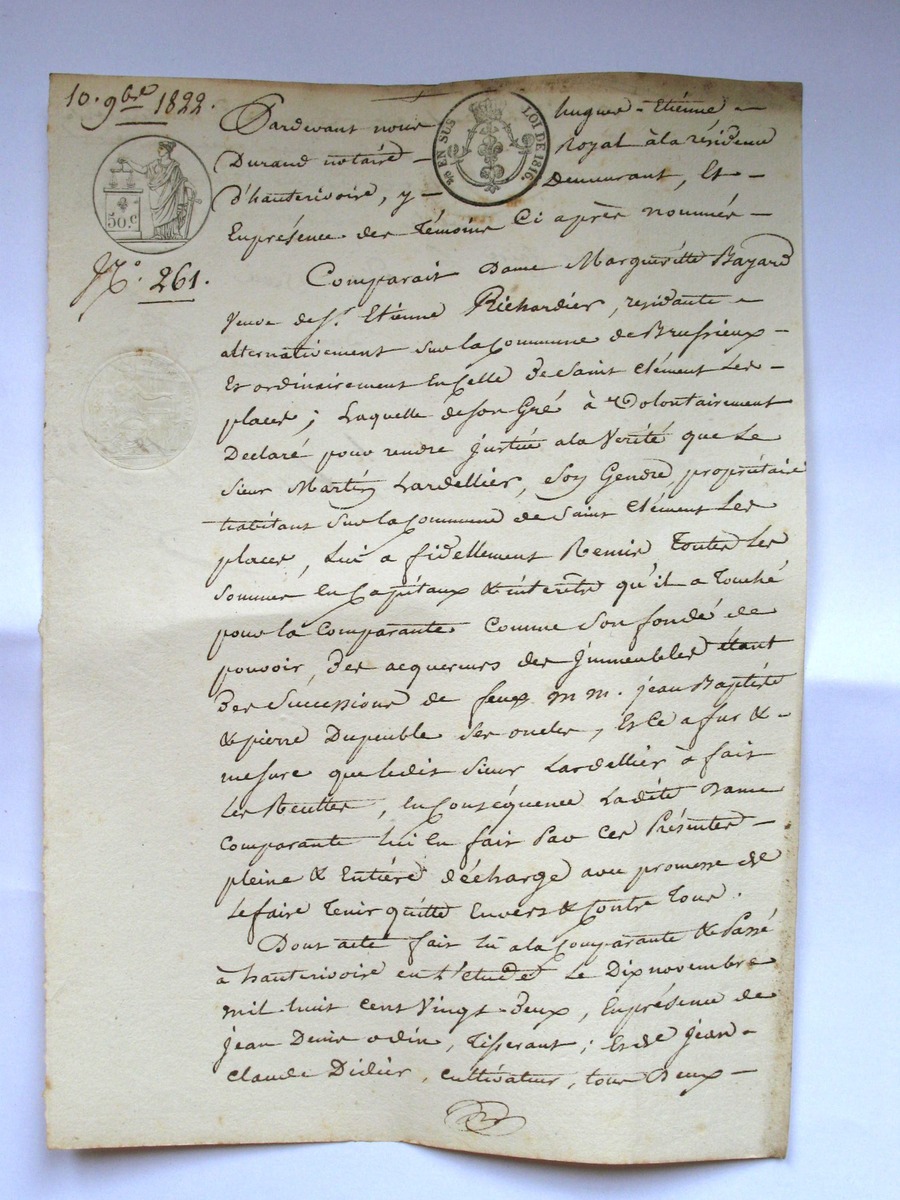 10. 9bre 1822.
50.c
No. 261.
EN SUS LOI DE 1816.
Pardevant nous hugues - Etiénne -
Durand notaire - Royal à la résidence
d'hauterivoire, y - Demeurant, Et -
En présence des Témoins Ci après nommés -
Comparait Dame Marguéritte Bayard
Veuve de Sr. Etiénne Richardier, residante -
alternativement sur la Commune de Brussieux -
Et ordinairement En Celle De Saint Clément Les -
places ; Laquelle de son Gré à Volontairement
Declaré pour rendre Justice a la Vérité que Le
Sieur Martin Lardellier, son Gendre, propriétaire
habitant sur la Commune de Saint Clément Les
places, Lui a fidellement Remis Toutes Les
Sommes En Capitaux & intérêts qu'il a Touché
pour la Comparante, Comme son fondé de
pouvoir, Des acquereurs des Jmmeubles étant
Des Successions de feux m m. jean Baptiste
& pierre Dupeuble Ses oncles, Et Ce a fur & -
mesure que ledit Sieur Lardellier à fait
Les Recettes, En Conséquence Ladite Dame
Comparante lui En fait Par Ces Présentes -
pleine & Entière décharge avec promesse de
Le faire Tenir quitte Envers & Contre Tous.
Dont acte fait lu a la Comparante & Passé
à hauterivoire en L'etude Le Dix novembre
mil huit cent Vingt-Deux, En présence de
jean Denis odin, Tisserant ; Et de Jean -
Claude Didier, cultivateur, tous Deux -